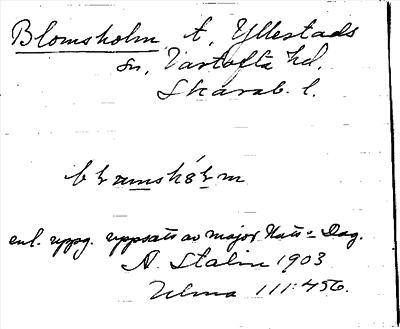 Blomsholm t, Yllestads
sn, Vartofta hd.
Skarab. l.
enl. uppg. uppsats av major Natt = Dag.
A. Stalin 1903
Ulma 111:456.